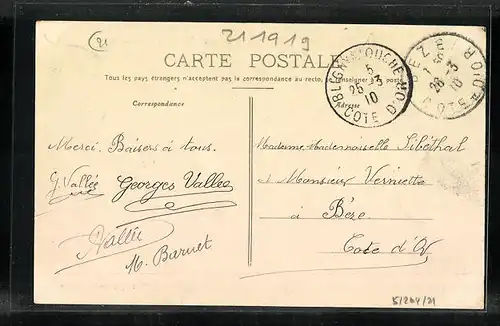 21
211919
CARTE POSTALE
Tous les pays étrangers n'acceptent pas la correspondance au recto, se renseigner à la Poste
BLIGNY-S-OUCHE
5
26-3
10
COTE D'OR
BÈZE
26-3
10
COTE D'OR
Correspondance
Adresse
Merci. Baisers à tous.
G. Vallée Georges Vallée
Vallée
M. Barnet
Madame, Mademoiselle Libéthal
& Monsieur Verniette
à Bèze
Cote d'Or
51/204/21